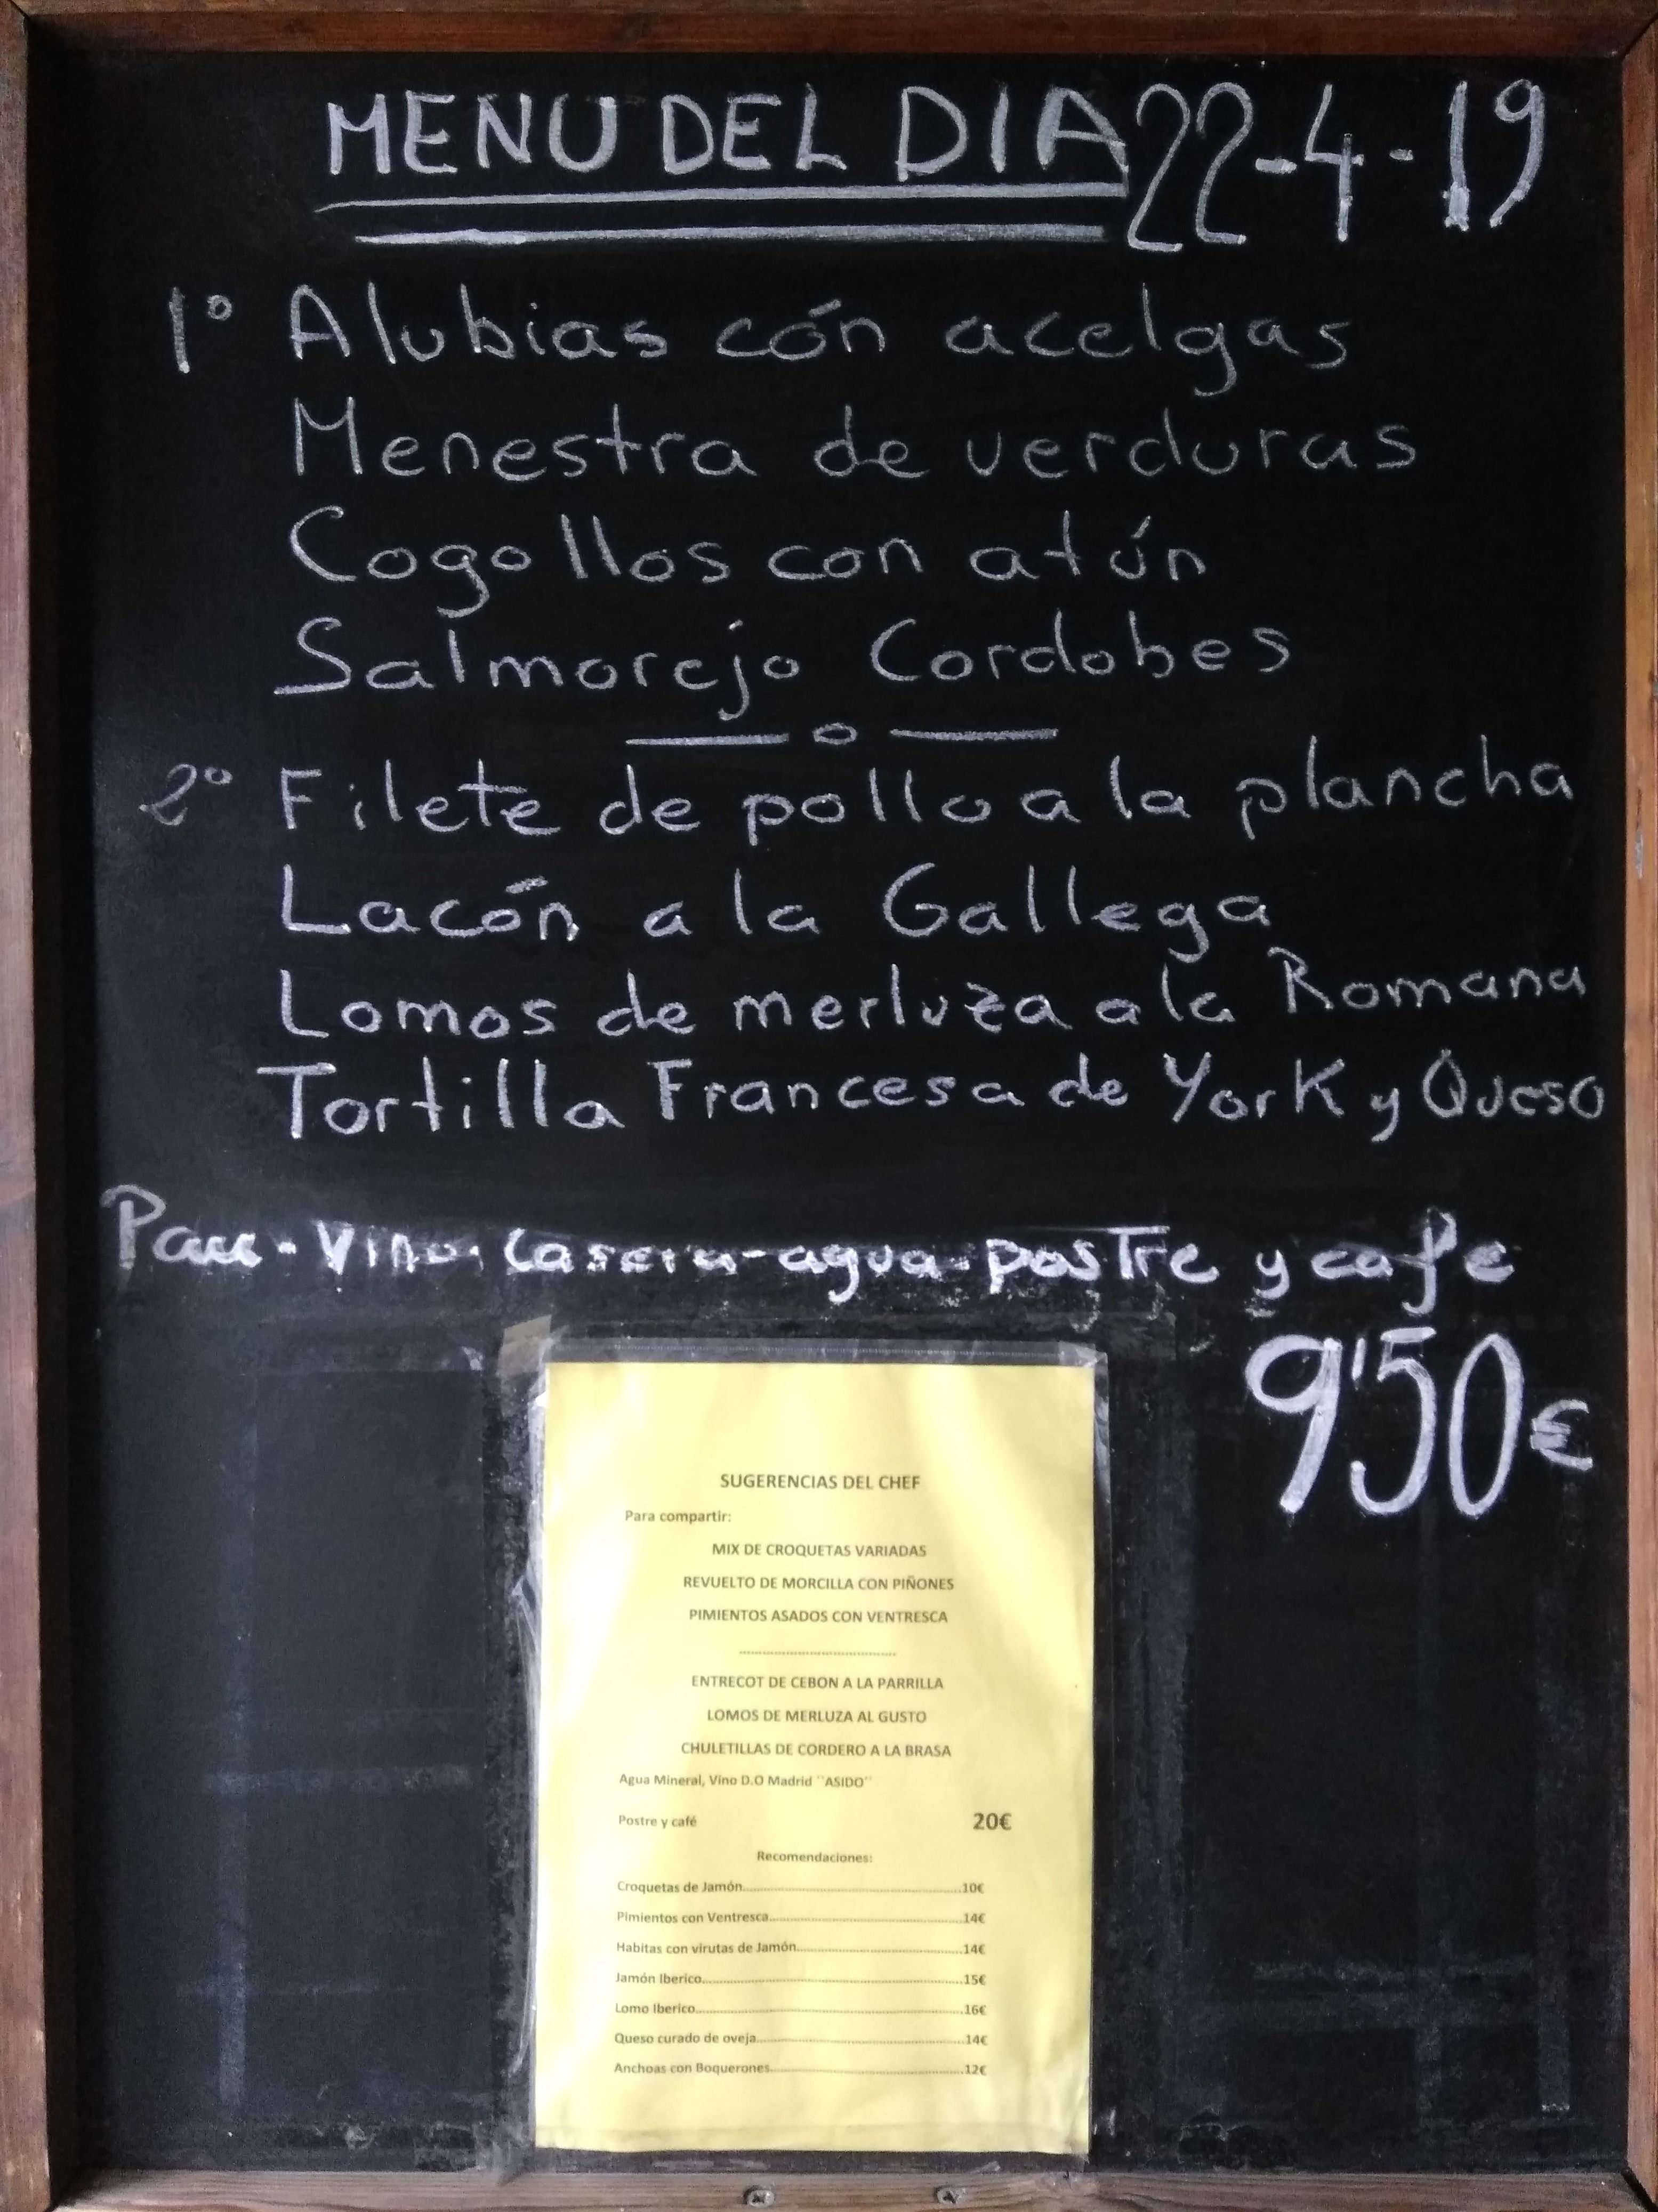 MENU DEL DIA 22-4-19
1º Alubias cón acelgas
Menestra de verduras
Cogollos con atún
Salmorejo Cordobes
— o —
2º Filete de pollo a la plancha
Lacón a la Gallega
Lomos de merluza a la Romana
Tortilla Francesa de York y Queso
Pan - Vino - Casera - agua - postre y cafe
9'50€
SUGERENCIAS DEL CHEF
Para compartir:
MIX DE CROQUETAS VARIADAS
REVUELTO DE MORCILLA CON PIÑONES
PIMIENTOS ASADOS CON VENTRESCA
----------------------------------------
ENTRECOT DE CEBON A LA PARRILLA
LOMOS DE MERLUZA AL GUSTO
CHULETILLAS DE CORDERO A LA BRASA
Agua Mineral, Vino D.O Madrid ``ASIDO``
Postre y café 20€
Recomendaciones:
Croquetas de Jamón........10€
Pimientos con Ventresca........14€
Habitas con virutas de Jamón........14€
Jamón Iberico........15€
Lomo Iberico........16€
Queso curado de oveja........14€
Anchoas con Boquerones........12€